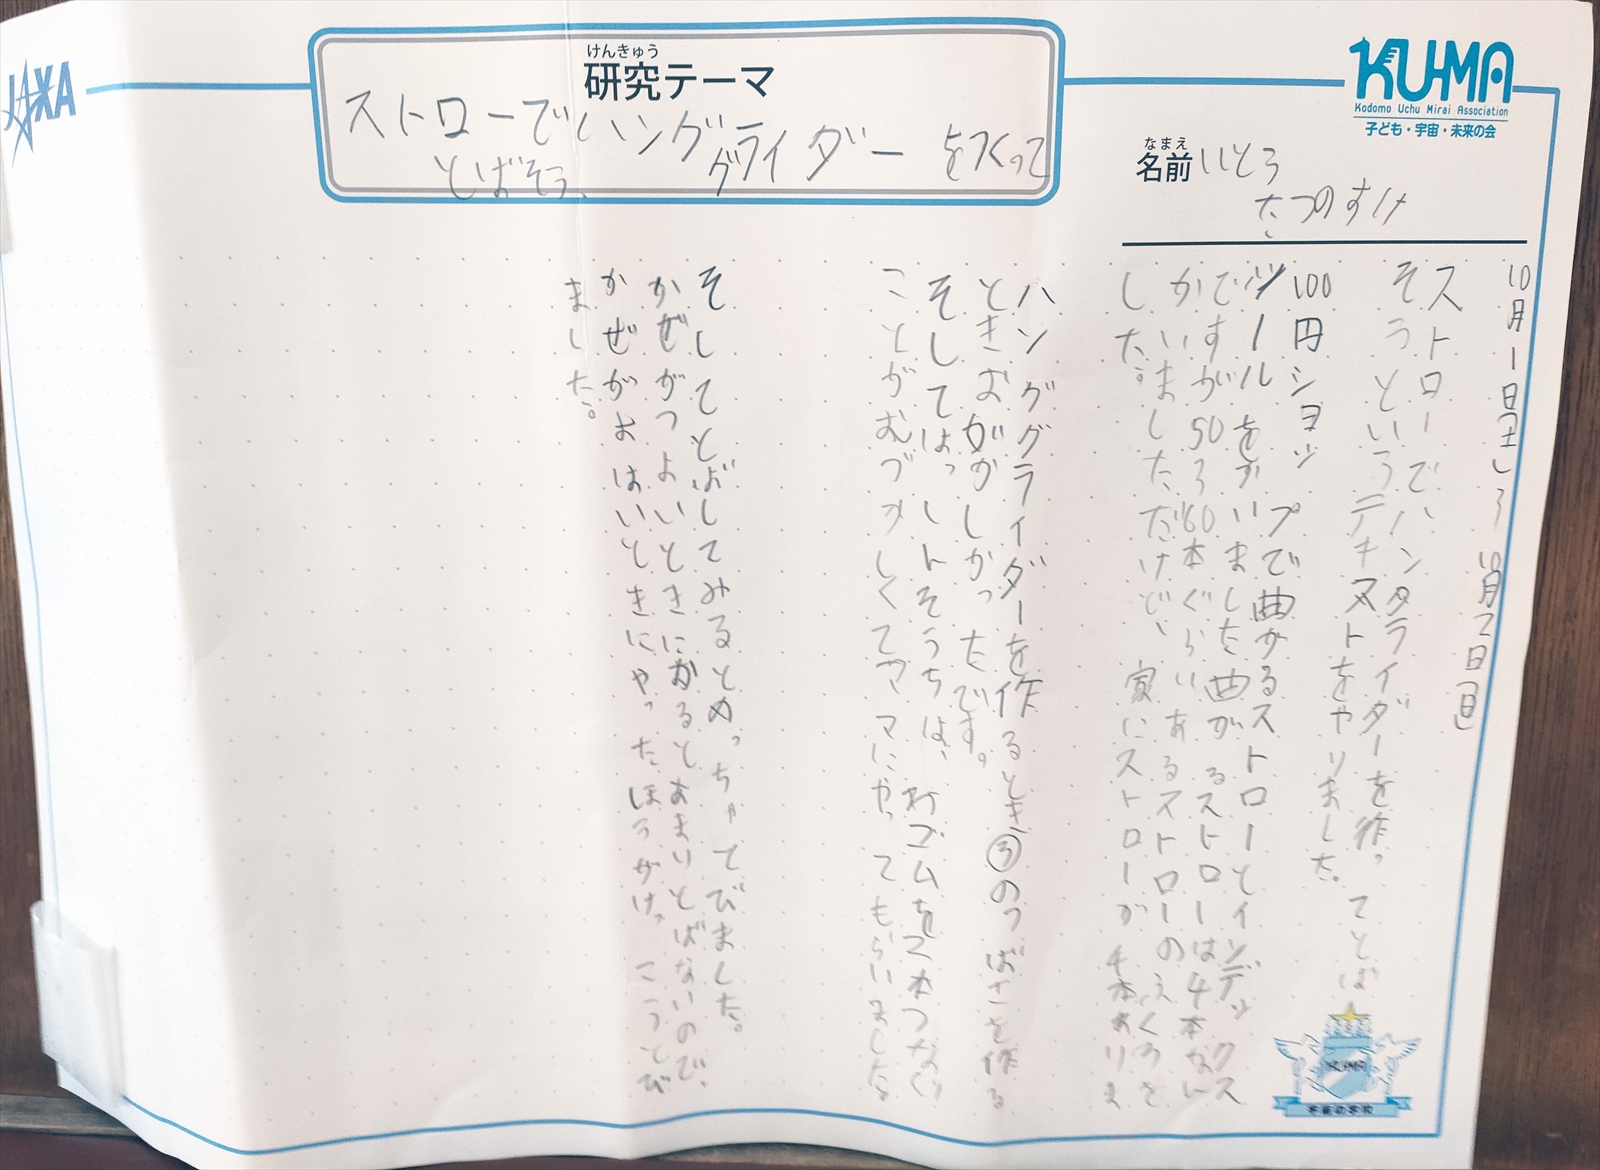 JAXA
けんきゅう
研究テーマ
ストローでハンググライダーをつくって
とばそう、
KUMA
Kodomo Uchu Mirai Association
子ども・宇宙・未来の会
なまえ
名前
いとう
たつのすけ
10月1日(土)〜10月2日(日)
ストローでハングライダーを作ってとば
そうというテキストをやりました。
100円ショップで曲がるストローとインデックス
シールをかいました曲がるストローは4本ない
ですが50〜60本ぐらいあるストローのふくろを
かいましただけど、家にストローが4本ありま
した。
ハンググライダーを作るとき③のつばさを作る
ときおがかしかったです。
そしてはっしんそうちは、わゴムを2本つなぐ
ことがむづかしくてママにやってもらいました
そしてとばしてみるとめっちゃとびました。
かぜがつよいときにかるとあまりとばないので、
かぜがよはいときにやったほうがけっこうとび
ました。
KUMA
宇宙の学校